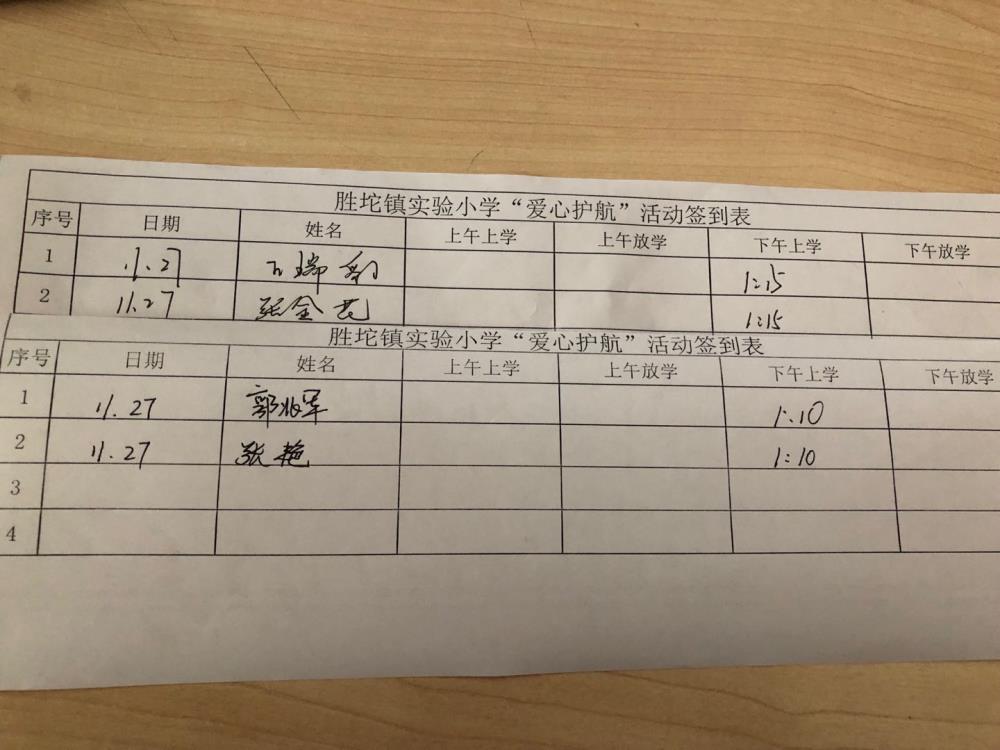 胜坨镇实验小学“爱心护航”活动签到表
序号 日期 姓名 上午上学 上午放学 下午上学 下午放学
1 11.27 瑞 1:15
2 11.27 张金花 1:15
胜坨镇实验小学“爱心护航”活动签到表
序号 日期 姓名 上午上学 上午放学 下午上学 下午放学
1 11.27 郭兆军 1:10
2 11.27 张艳 1:10
3
4